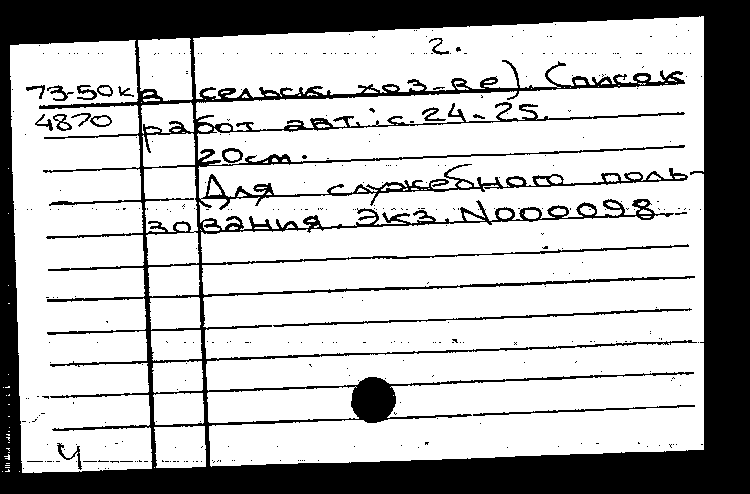 2.
73-50к в сельск. хоз-ве). Список
4870 работ авт.: с. 24-25.
20см.
Для служебного поль-
зования. Экз. N000098.
Ч